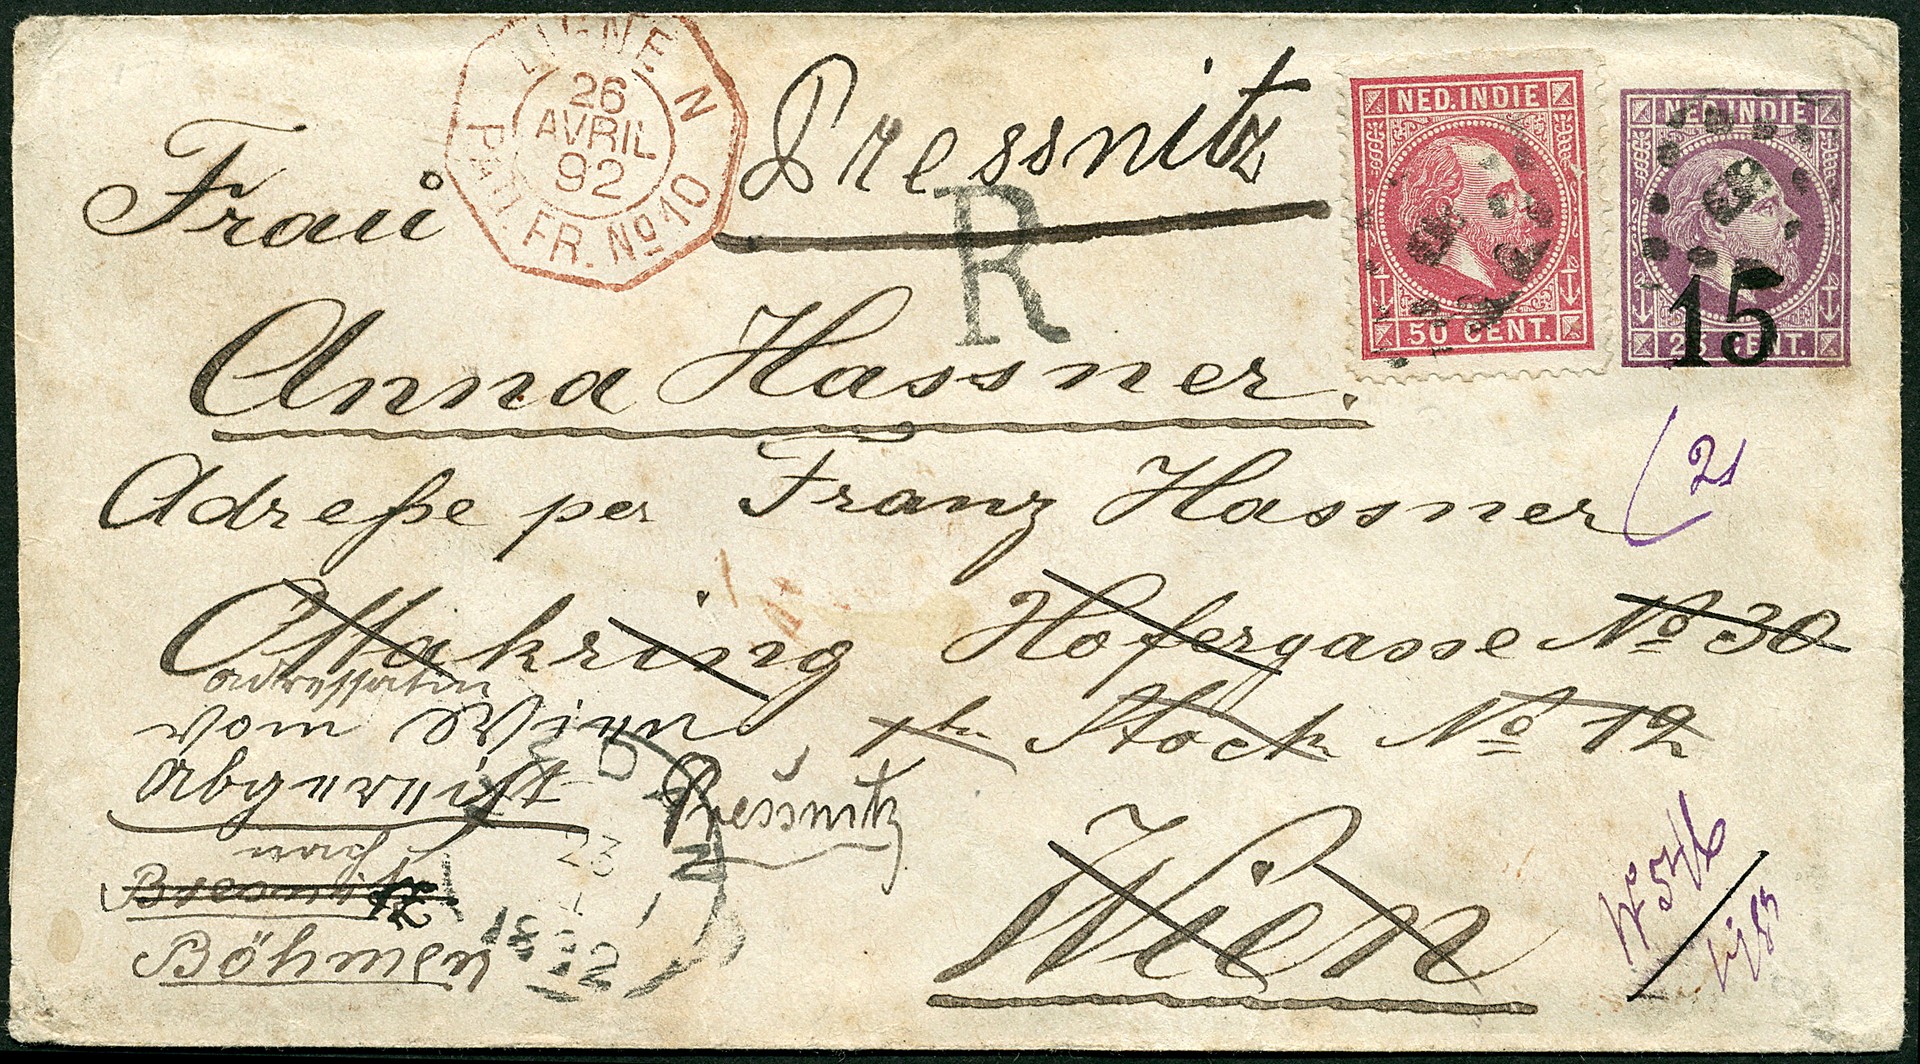 LIGNE N
26
AVRIL
92
PAQ. FR. No 10
Pressnitz
R
NED. INDIE
50 CENT.
NED. INDIE
15
25 CENT.
Frau
Anna Hassner.
Adreße per Franz Hassner
21
Ottakring Hofergasse No 30
adressatin
vor
1 Stock No 12
Pressnitz
23
1892
Wien
Böhmen
No 546